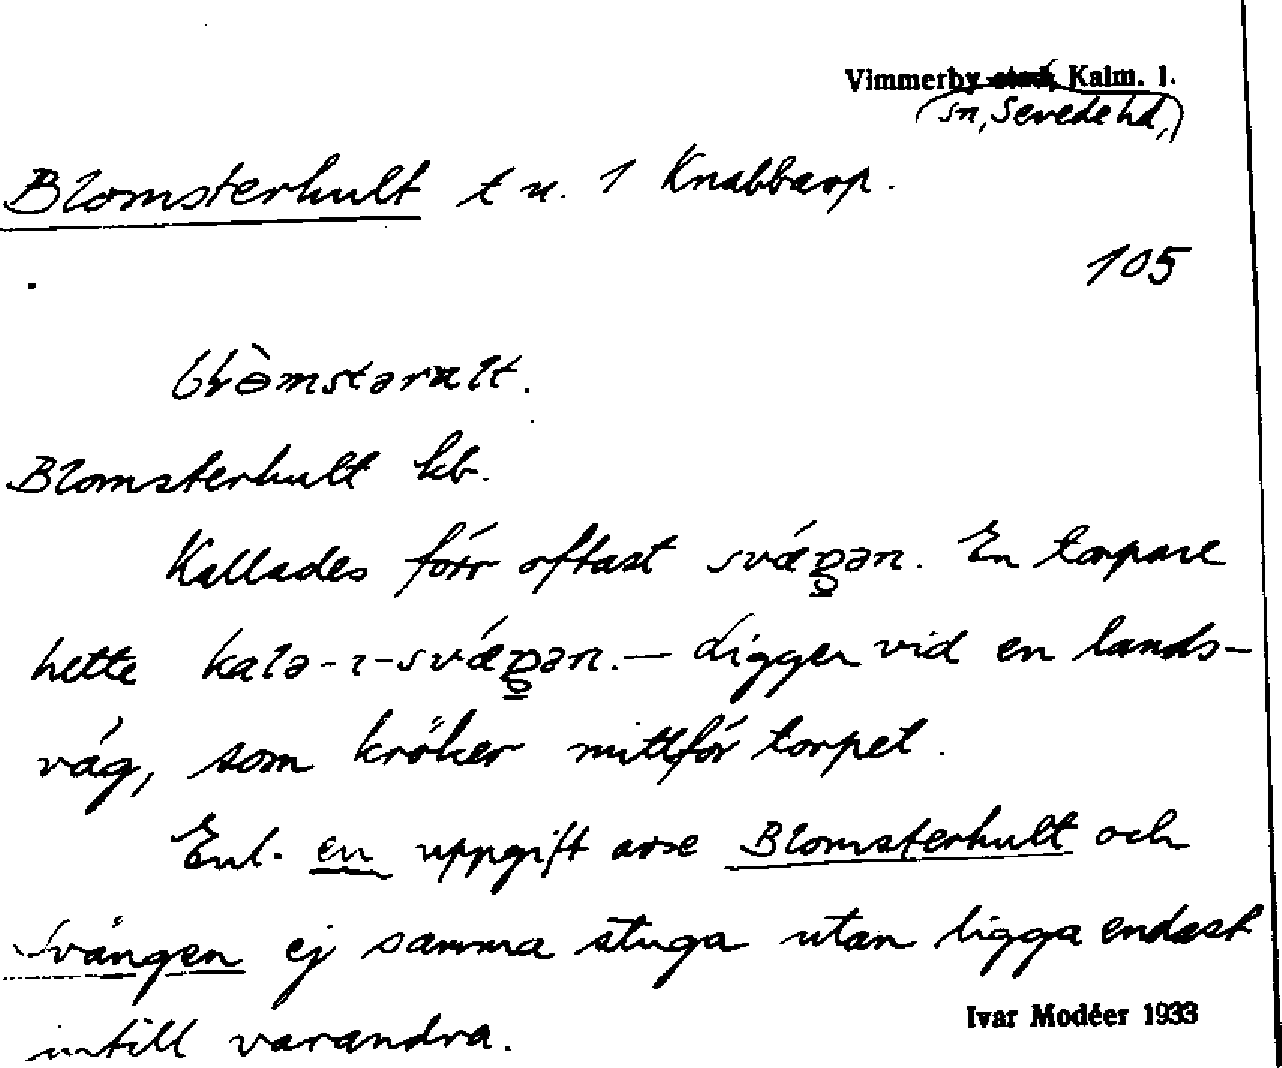 Vimmerby stad, Kalm. l.
(sn, Sevede hd,)
Blomsterhult t u. 1 Knabbarp.
105
Blomsterhult kb.
Kallades förr oftast svæŋən. En torpare
hette kalə-ɩ-svæŋən. — Ligger vid en lands-
väg, som kröker mittför torpet.
Enl. en uppgift avse Blomsterhult och
Svängen ej samma stuga utan ligga endast
intill varandra.
Ivar Modéer 1933